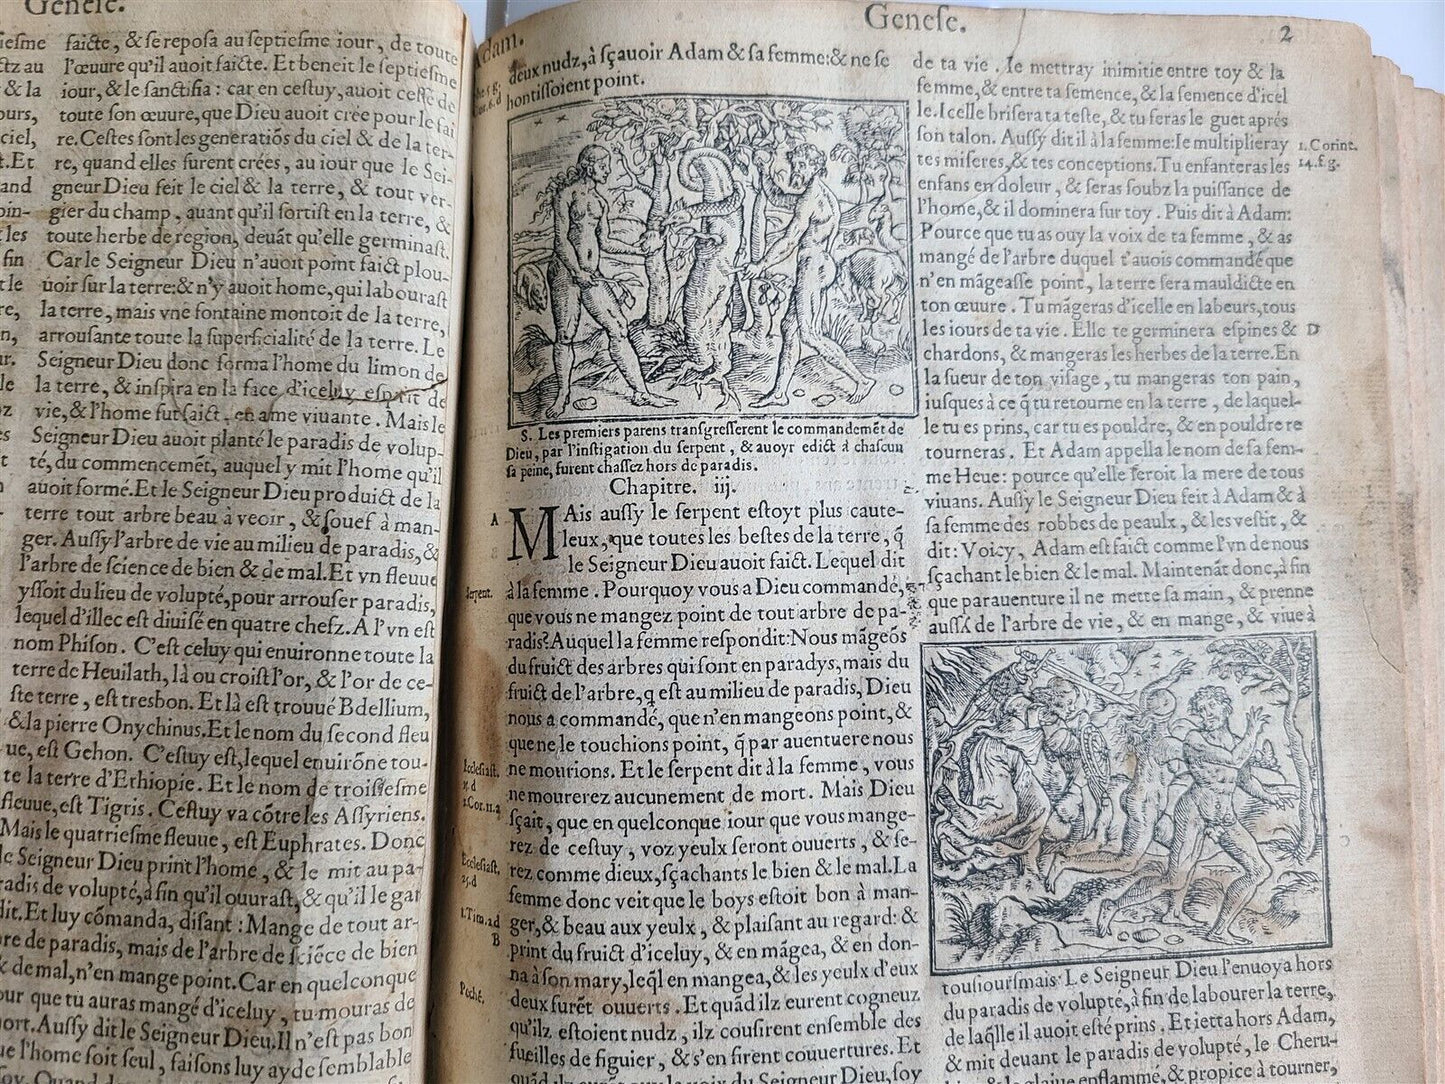 Genese.
faicte, & se reposa au septiesme iour, de toute
l'œuure qu'il auoit faicte. Et beneit le septiesme
iour, & le sanctifia: car en cestuy, auoit cessé de
toute son œuure, que Dieu auoit crée pour le fai
re. Cestes sont les generatiõs du ciel & de la ter-
re, quand elles furent crées, au iour que le Sei-
gneur Dieu feit le ciel & la terre, & tout ver-
gier du champ, auant qu'il sortist en la terre, &
toute herbe de region, deuãt qu'elle germinast.
Car le Seigneur Dieu n'auoit point faict plou-
uoir sur la terre: & n'y auoit home, qui labourast
la terre, mais vne fontaine montoit de la terre,
arrousante toute la superficialité de la terre. Le
Seigneur Dieu donc forma l'home du limon de
la terre, & inspira en la face d'iceluy esprit de
vie, & l'home fut faict en ame viuante. Mais le
Seigneur Dieu auoit planté le paradis de volup-
té, du commencemẽt, auquel y mit l'home qu'il
auoit formé. Et le Seigneur Dieu produict de la
terre tout arbre beau à veoir, & souef à man-
ger. Aussy l'arbre de vie au milieu de paradis, &
l'arbre de science de bien & de mal. Et vn fleuue
yssoit du lieu de volupté, pour arrouser paradis,
lequel d'illec est diuisé en quatre chefz. A l'vn est
nom Phison. C'est celuy qui enuironne toute la
terre de Heuilath, là ou croist l'or, & l'or de ce-
ste terre, est tresbon. Et là est trouué Bdellium,
& la pierre Onychinus. Et le nom du second fleu
ue, est Gehon. C'estuy est, lequel enuirõne tou-
te la terre d'Ethiopie. Et le nom de troisiesme
fleuue, est Tigris. Cestuy va cõtre les Assyriens.
Mais le quatriesme fleuue, est Euphrates. Donc
le Seigneur Dieu print l'home, & le mit au pa-
radis de volupté, à fin qu'il ouurast, & qu'il le gar
dit. Et luy cõmanda, disant: Mange de tout ar-
bre de paradis, mais de l'arbre de sciẽce de bien
& de mal, n'en mange point. Car en quelconque
our que tu auras mangé d'iceluy, tu mouras de
mort. Aussy dit le Seigneur Dieu. Il n'est pas bon
que l'home soit seul, faisons luy ayde semblable
Genese.
2
Adam.
deux nudz, à sçauoir Adam & sa femme: & ne se
hontissoient point.
S. Les premiers parens transgresserent le commandemẽt de
Dieu, par l'instigation du serpent, & auoyr edict à chascun
sa peine, furent chassez hors de paradis.
Chapitre. iij.
A
MAis aussy le serpent estoyt plus caute-
leux, que toutes les bestes de la terre, q̃
le Seigneur Dieu auoit faict. Lequel dit
Serpent.
à la femme. Pourquoy vous a Dieu commandé,
que vous ne mangez point de tout arbre de pa-
radis? Auquel la femme respondit: Nous mãgeõs
du fruict des arbres qui sont en paradys, mais du
fruict de l'arbre, q est au milieu de paradis, Dieu
nous a commandé, que n'en mangeons point, &
que ne le touchions point, q̃ par auentuere nous
ne mourions. Et le serpent dit à la femme, vous
ne mourerez aucunement de mort. Mais Dieu
sçait, que en quelconque iour que vous mange-
rez de cestuy, voz yeulx seront ouuerts, & se-
rez comme dieux, sçachants le bien & le mal. La
femme donc veit que le boys estoit bon à man-
ger, & beau aux yeulx, & plaisant au regard: &
print du fruict d'iceluy, & en mãgea, & en don-
na à son mary, leq̃l en mangea, & les yeulx d'eux
deux furẽt ouuerts. Et quãd ilz eurent cogneuz
qu'ilz estoient nudz, ilz cousirent ensemble des
fueilles de figuier, & s'en firent couuertures. Et
quãd ilz eurent ouy la voix du Seigneur Dieu, soy
Ecclesiast.
2.Cor.11.a
Ecclesiast.
25.d
1.Tim.2.d
B
Peché.
de ta vie. Ie mettray inimitie entre toy & la
femme, & entre ta semence, & la semence d'icel
le. Icelle brisera ta teste, & tu feras le guet aprés
son talon. Aussy dit il à la femme: Ie multiplieray
tes miseres, & tes conceptions. Tu enfanteras les
enfans en doleur, & seras soubz la puissance de
l'home, & il dominera sur toy. Puis dit à Adam:
Pource que tu as ouy la voix de ta femme, & as
mangé de l'arbre duquel t'auois commandé que
n'en mãgeasse point, la terre sera mauldicte en
ton œuure. Tu mãgeras d'icelle en labeurs, tous
les iours de ta vie. Elle te germinera espines &
chardons, & mangeras les herbes de la terre. En
la sueur de ton visage, tu mangeras ton pain,
iusques à ce q̃ tu retourne en la terre, de laquel-
le tu es prins, car tu es pouldre, & en pouldre re
tourneras. Et Adam appella le nom de sa fem-
me Heue: pource qu'elle seroit la mere de tous
viuans. Aussy le Seigneur Dieu feit à Adam & à
sa femme des robbes de peaulx, & les vestit, &
dit: Voicy, Adam est faict comme l'vn de nous
sçachant le bien & le mal. Maintenãt donc, à fin
que parauenture il ne mette sa main, & prenne
aussy de l'arbre de vie, & en mange, & viue à
1.Corint.
14.f g.
D
tousioursmais: Le Seigneur Dieu l'enuoya hors
du paradis de volupté, à fin de labourer la terre,
de laq̃lle il auoit esté prins. Et ietta hors Adam,
& mit deuant le paradis de volupté, le Cheru-
bin, & glaiue enflammé, & propice à tourner,